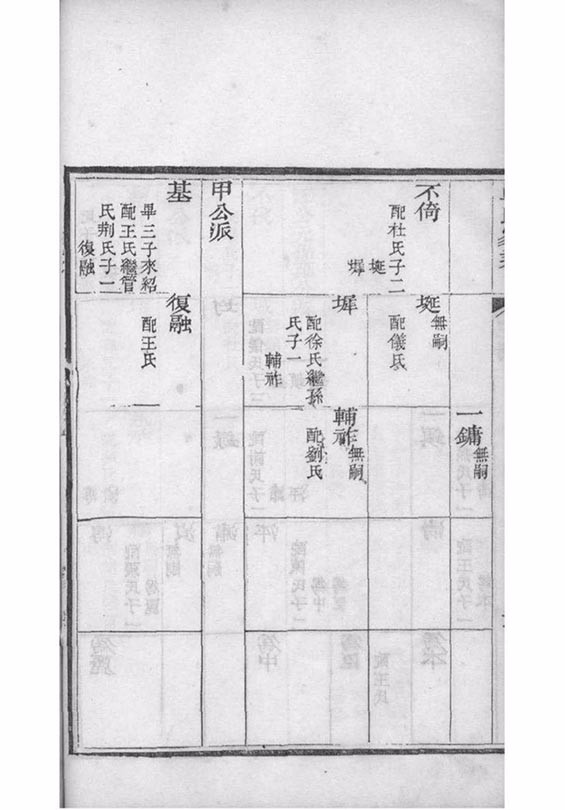 一鏞 無嗣
不倚
配杜氏子二
埏
墀
埏 無嗣
配儀氏
墀
配徐氏繼孫
氏子一
輔祚
輔祚 無嗣
配劉氏
甲公派
基
畢三子來紹
配王氏繼管
氏荆氏子一
復融
復融
配王氏